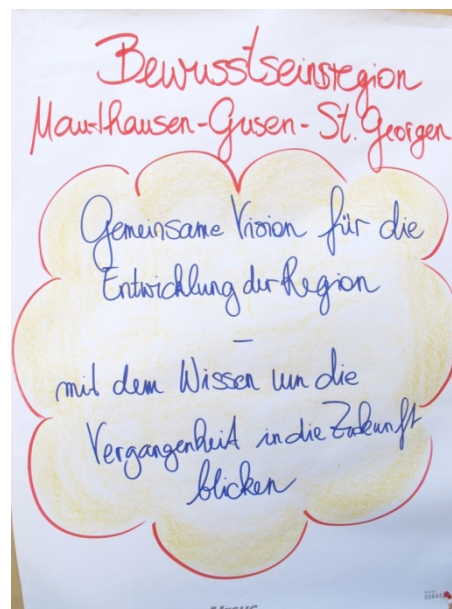 Bewusstseinsregion
Mauthausen-Gusen-St. Georgen
Gemeinsame Vision für die
Entwicklung der Region
–
mit dem Wissen um die
Vergangenheit in die Zukunft
blicken